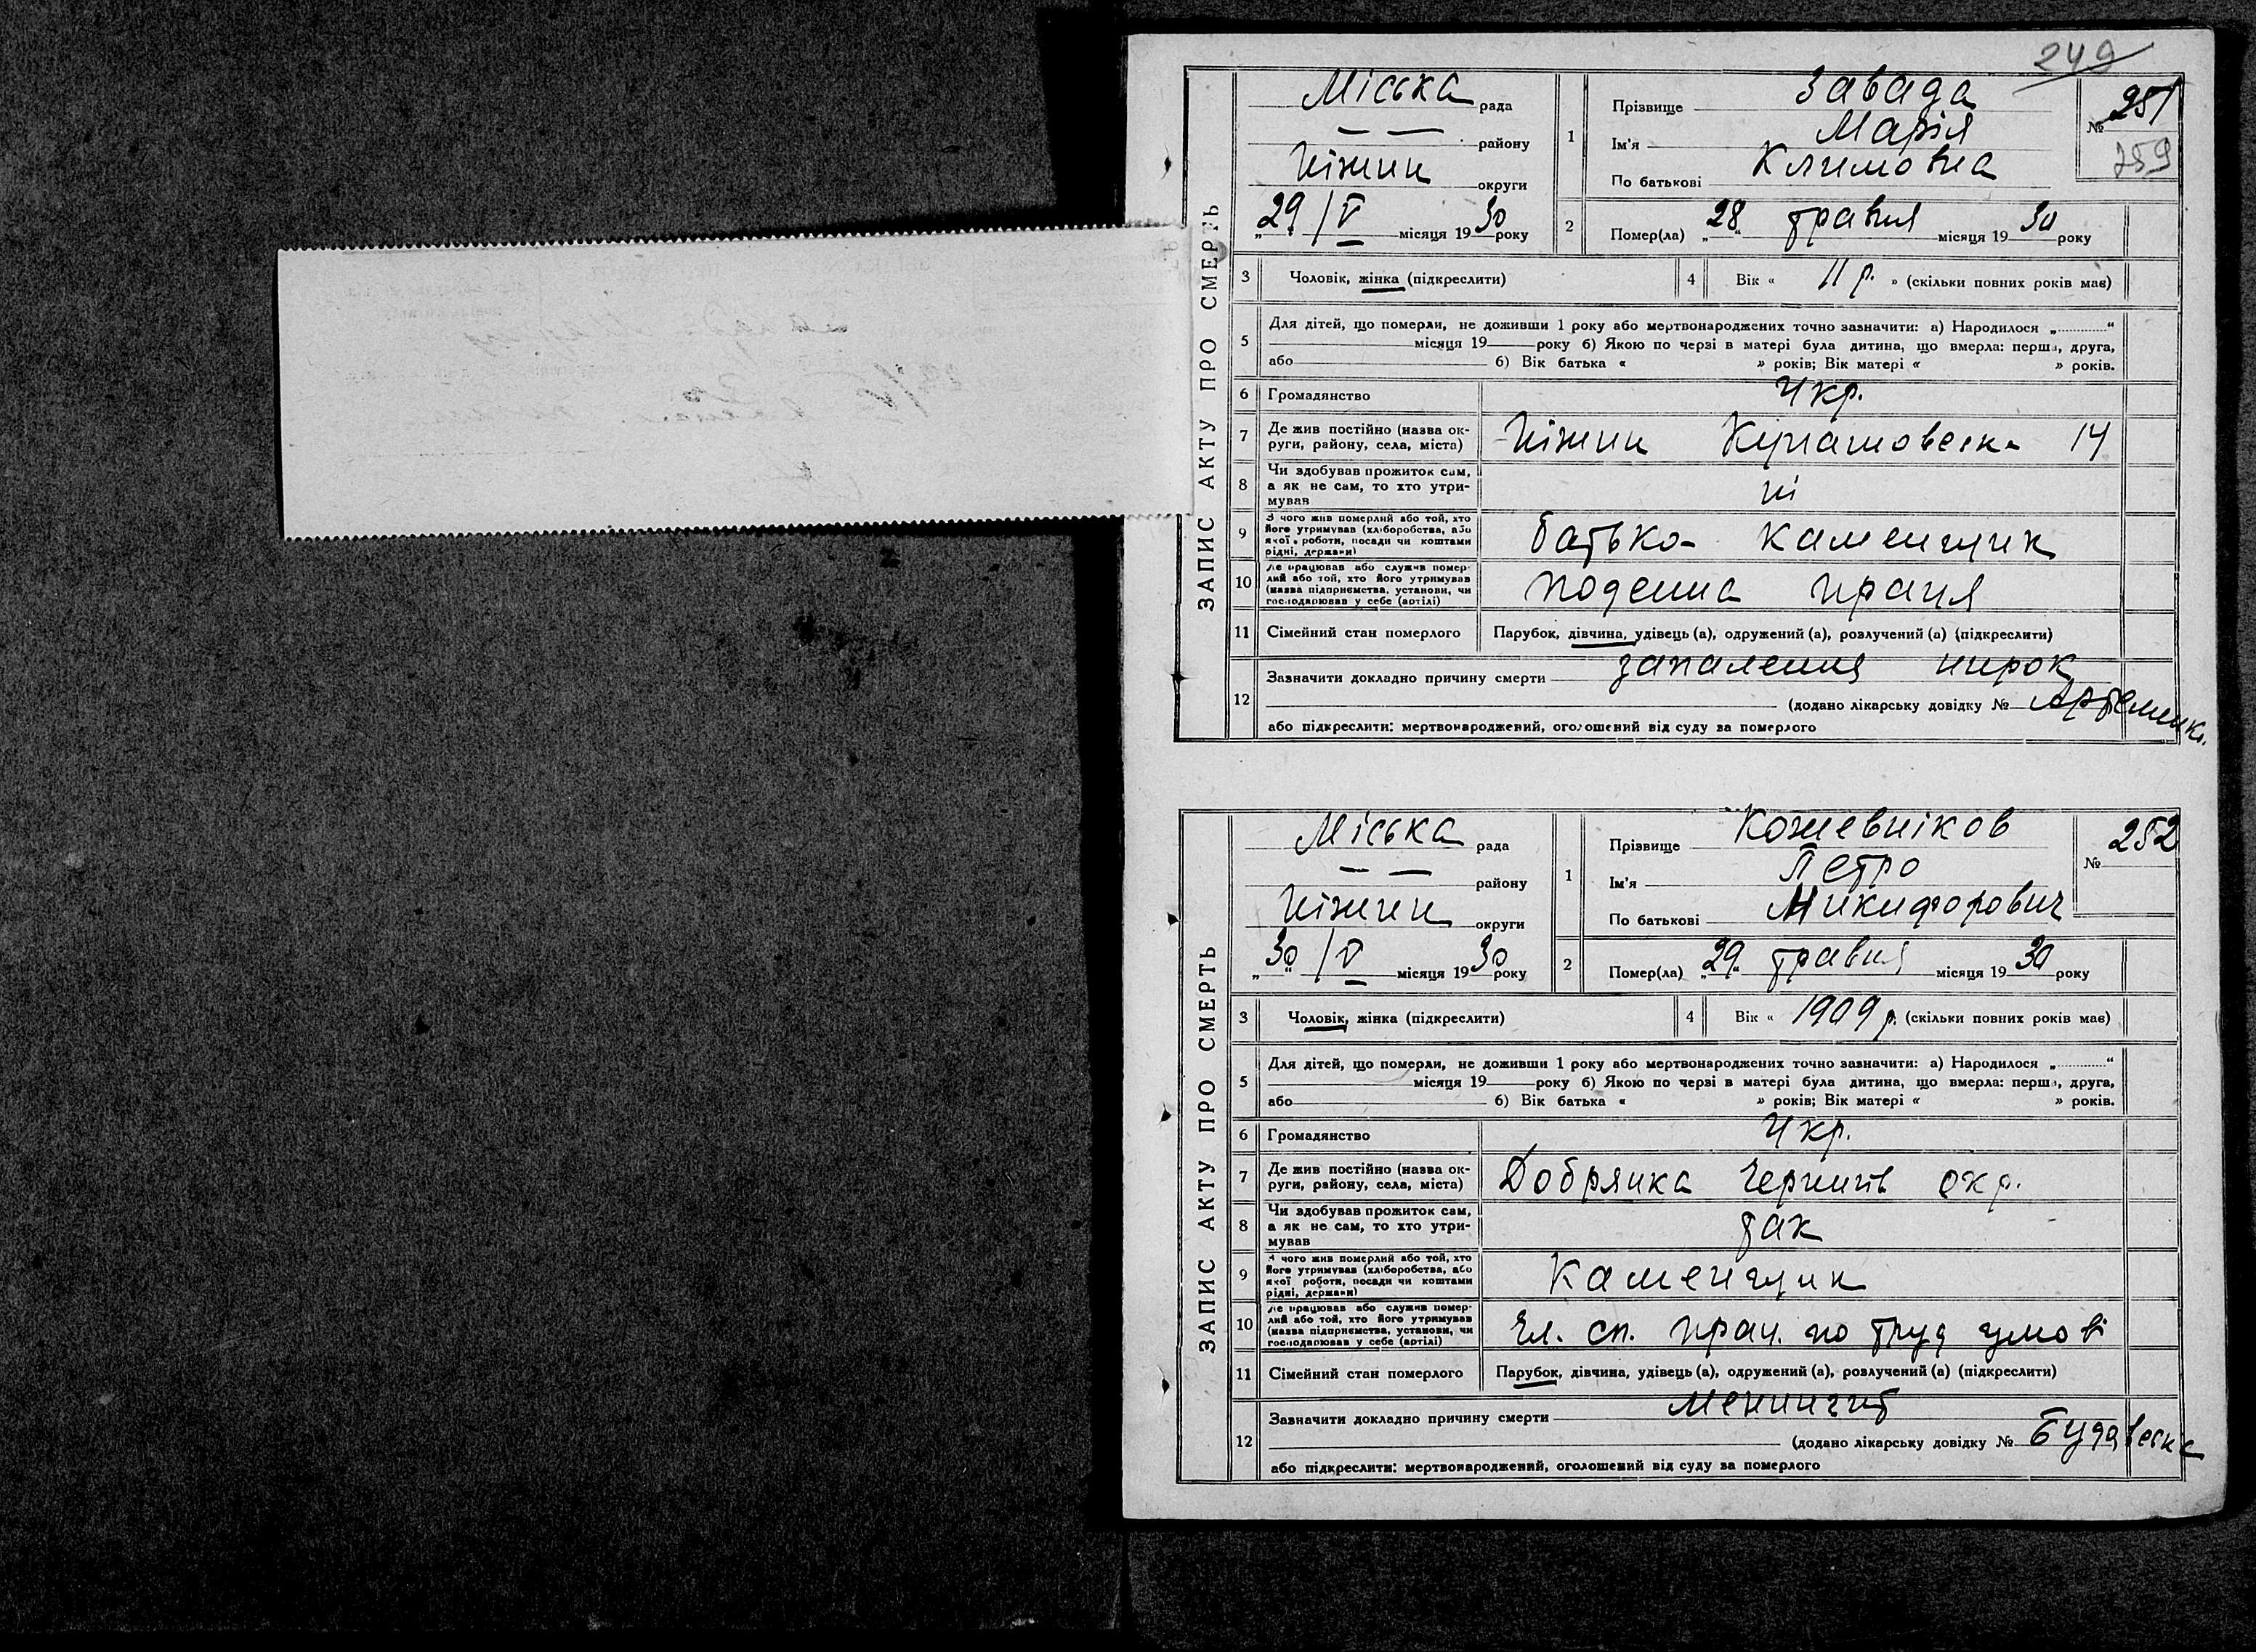 249
ЗАПИС АКТУ ПРО СМЕРТЬ
Міська рада
— — району
Ніжин округи
„29 / V місяця 1930 року
1
Прізвище Завада
Ім'я Марія
По батькові Климовна
№ 251
259
2
Помер(ла) „28“ травня місяця 1930 року
3 Чоловік, жінка (підкреслити)
4 Вік « 11 р. » (скільки повних років має)
5 Для дітей, що померли, не доживши 1 року або мертвонароджених точно зазначити: а) Народилося „ “
місяця 19 року б) Якою по черзі в матері була дитина, що вмерла: перша, друга,
або б) Вік батька « » років; Вік матері « » років.
6 Громадянство Укр.
7 Де жив постійно (назва ок-
руги, району, села, міста) Ніжин 14
8 Чи здобував прожиток сам,
а як не сам, то хто утри-
мував ні
9 З чого жив померлий або той, хто
його утримував (хліборобства, або
якої роботи, посади чи коштами
рідні, держави) батько- каменщик
10 Де працював або служив помер-
лий або той, хто його утримував
(назва підприємства, установи, чи
господарював у себе (артілі) поденна праця
11 Сімейний стан померлого Парубок, дівчина, удівець (а), одружений (а), розлучений (а) (підкреслити)
12 Зазначити докладно причину смерти запалення нирок
(додано лікарську довідку №
або підкреслити: мертвонароджений, оголошений від суду за померлого
ЗАПИС АКТУ ПРО СМЕРТЬ
Міська рада
— — району
Ніжин округи
„30“ / V місяця 1930 року
1
Прізвище Кожевніков
Ім'я Петро
По батькові Микифорович
№ 252
2
Помер(ла) „29“ травня місяця 1930 року
3 Чоловік, жінка (підкреслити)
4 Вік « 1909 р. (скільки повних років має)
5 Для дітей, що померли, не доживши 1 року або мертвонароджених точно зазначити: а) Народилося „ “
місяця 19 року б) Якою по черзі в матері була дитина, що вмерла: перша, друга,
або б) Вік батька « » років; Вік матері « » років.
6 Громадянство Укр.
7 Де жив постійно (назва ок-
руги, району, села, міста) Добрянка Чернигів окр.
8 Чи здобував прожиток сам,
а як не сам, то хто утри-
мував так
9 З чого жив померлий або той, хто
його утримував (хліборобства, або
якої роботи, посади чи коштами
рідні, держави) Каменщик
10 Де працював або служив помер-
лий або той, хто його утримував
(назва підприємства, установи, чи
господарював у себе (артілі) Чл. сп. прац. по труд умові
11 Сімейний стан померлого Парубок, дівчина, удівець (а), одружений (а), розлучений (а) (підкреслити)
12 Зазначити докладно причину смерти менингит
(додано лікарську довідку №
або підкреслити: мертвонароджений, оголошений від суду за померлого